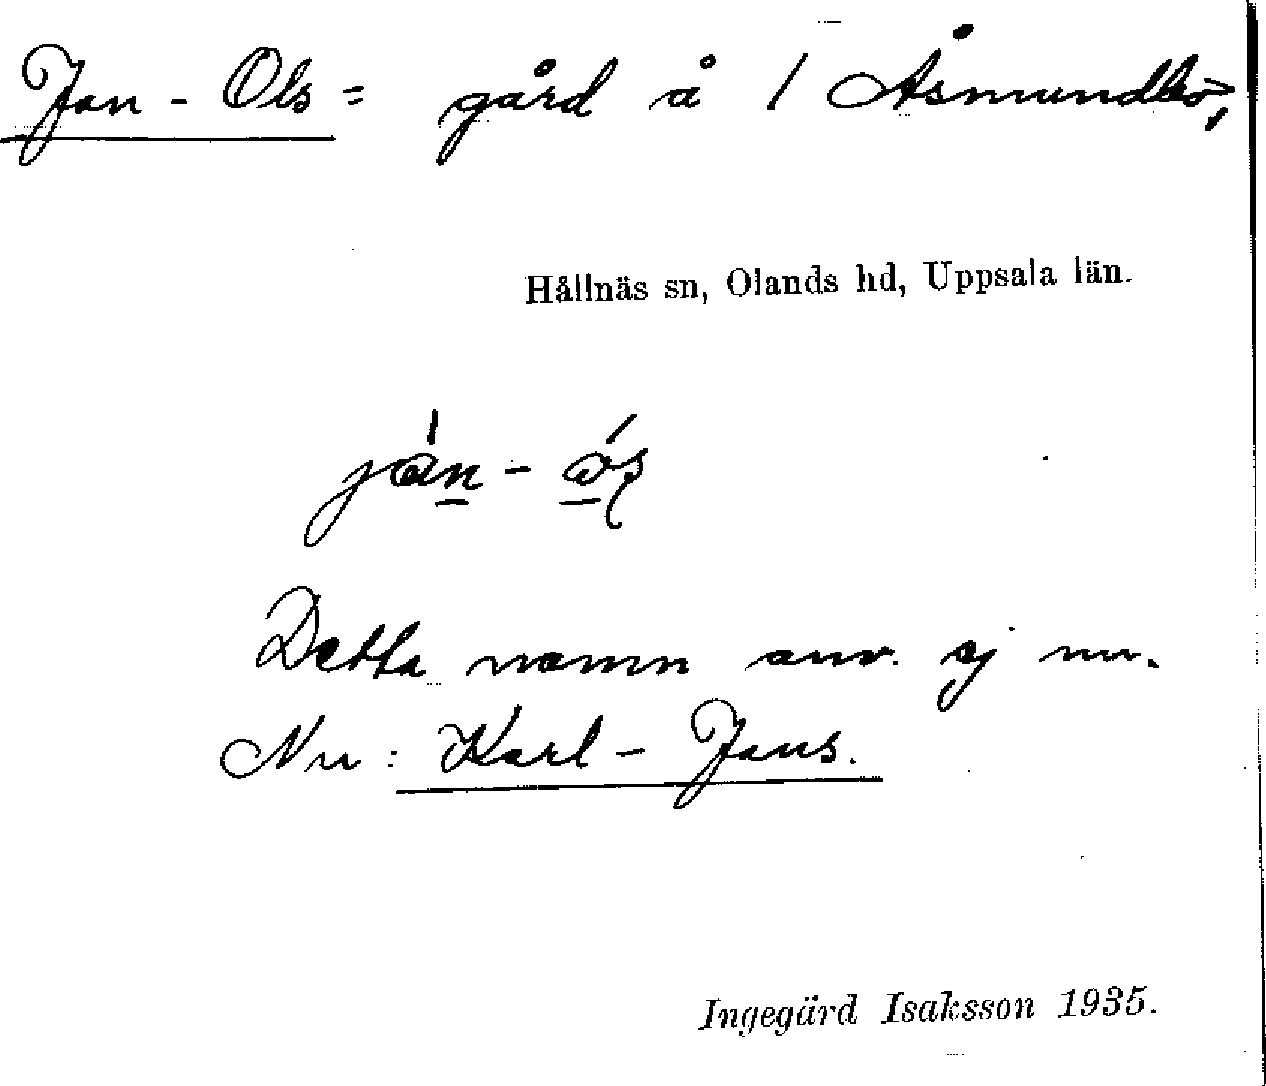 Jan-Ols = gård å 1 Åsmundbo,
Hållnäs sn, Olands hd, Uppsala län.
Detta namn anv. ej nu.
Nu: Karl-Jans.
Ingegärd Isaksson 1935.